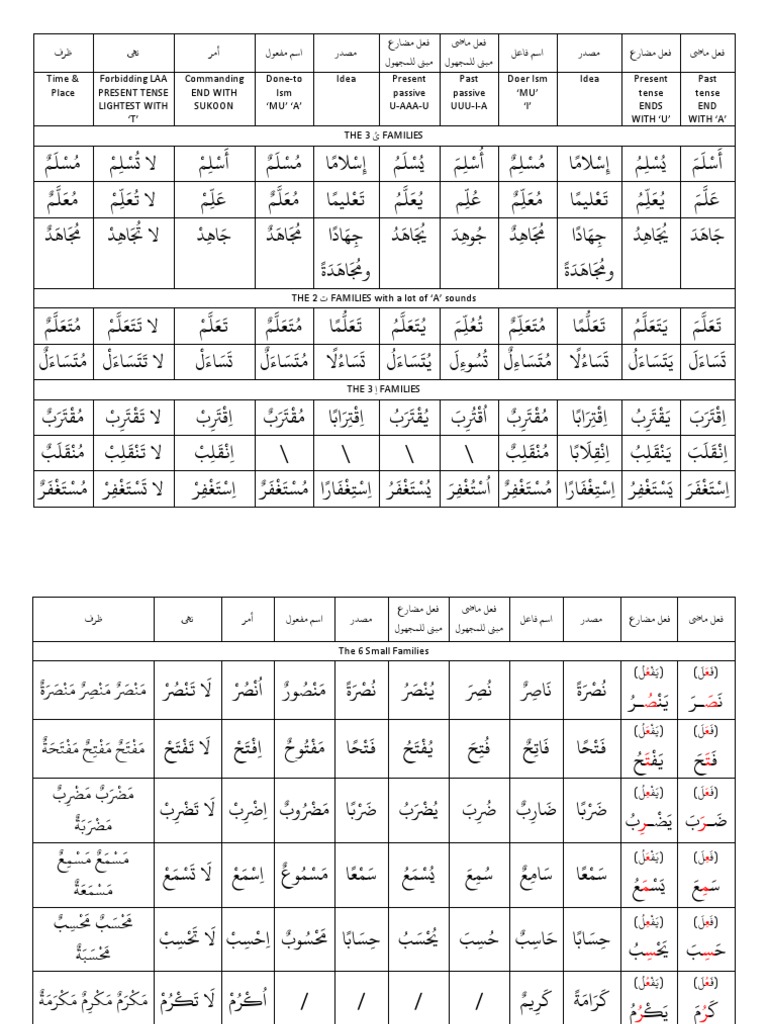 فعل ماضی فعل مضارع مصدر اسم فاعل فعل ماضی مبنی للمجهول فعل مضارع مبنی للمجهول مصدر اسم مفعول أمر نهی ظرف
Past tense END WITH ‘A’
Present tense ENDS WITH ‘U’
Idea
Doer Ism ‘MU’ ‘I’
Past passive UUU-I-A
Present passive U-AAA-U
Idea
Done-to Ism ‘MU’ ‘A’
Commanding END WITH SUKOON
Forbidding LAA PRESENT TENSE LIGHTEST WITH ‘T’
Time & Place
أَسْلَمَ يُسْلِمُ إِسْلامًا مُسْلِمٌ أُسْلِمَ يُسْلَمُ إِسْلامًا مُسْلَمٌ أَسْلِمْ لا تُسْلِمْ مُسْلَمٌ
عَلَّمَ يُعَلِّمُ تَعْلِيمًا مُعَلِّمٌ عُلِّمَ يُعَلَّمُ تَعْلِيمًا مُعَلَّمٌ عَلِّمْ لا تُعَلِّمْ مُعَلَّمٌ
جَاهَدَ يُجَاهِدُ جِهَادًا ومُجَاهَدَةً مُجَاهِدٌ جُوهِدَ يُجَاهَدُ جِهَادًا ومُجَاهَدَةً مُجَاهَدٌ جَاهِدْ لا تُجَاهِدْ مُجَاهَدٌ
THE 2 ت FAMILIES with a lot of ‘A’ sounds
تَعَلَّمَ يَتَعَلَّمُ تَعَلُّمًا مُتَعَلِّمٌ تُعُلِّمَ يُتَعَلَّمُ تَعَلُّمًا مُتَعَلَّمٌ تَعَلَّمْ لا تَتَعَلَّمْ مُتَعَلَّمٌ
تَسَاءَلَ يَتَسَاءَلُ تَسَاءُلًا مُتَسَاءِلٌ تُسُوءِلَ يُتَسَاءَلُ تَسَاءُلًا مُتَسَاءَلٌ تَسَاءَلْ لا تَتَسَاءَلْ مُتَسَاءَلٌ
THE 3 اِ FAMILIES
اِقْتَرَبَ يَقْتَرِبُ اِقْتِرَابًا مُقْتَرِبٌ اُقْتُرِبَ يُقْتَرَبُ اِقْتِرَابًا مُقْتَرَبٌ اِقْتَرِبْ لا تَقْتَرِبْ مُقْتَرَبٌ
اِنْقَلَبَ يَنْقَلِبُ اِنْقِلَابًا مُنْقَلِبٌ \ \ \ \ اِنْقَلِبْ لا تَنْقَلِبْ مُنْقَلَبٌ
اِسْتَغْفَرَ يَسْتَغْفِرُ اِسْتِغْفَارًا مُسْتَغْفِرٌ اُسْتُغْفِرَ يُسْتَغْفَرُ اِسْتِغْفَارًا مُسْتَغْفَرٌ اِسْتَغْفِرْ لا تَسْتَغْفِرْ مُسْتَغْفَرٌ
فعل ماضی فعل مضارع مصدر اسم فاعل فعل ماضی مبنی للمجهول فعل مضارع مبنی للمجهول مصدر اسم مفعول أمر نهی ظرف
The 6 Small Families
(فَعَلَ) نَصَرَ (يَفْعُلُ) يَنْصُرُ نُصْرَةً نَاصِرٌ نُصِرَ يُنْصَرُ نُصْرَةً مَنْصُورٌ اُنْصُرْ لَا تَنْصُرْ مَنْصَرٌ مَنْصِرٌ مَنْصَرَةٌ
(فَعَلَ) فَتَحَ (يَفْعَلُ) يَفْتَحُ فَتْحًا فَاتِحٌ فُتِحَ يُفْتَحُ فَتْحًا مَفْتُوحٌ اِفْتَحْ لَا تَفْتَحْ مَفْتَحٌ مَفْتِحٌ مَفْتَحَةٌ
(فَعَلَ) ضَرَبَ (يَفْعِلُ) يَضْرِبُ ضَرْبًا ضَارِبٌ ضُرِبَ يُضْرَبُ ضَرْبًا مَضْرُوبٌ اِضْرِبْ لَا تَضْرِبْ مَضْرَبٌ مَضْرِبٌ مَضْرَبَةٌ
(فَعِلَ) سَمِعَ (يَفْعَلُ) يَسْمَعُ سَمْعًا سَامِعٌ سُمِعَ يُسْمَعُ سَمْعًا مَسْمُوعٌ اِسْمَعْ لَا تَسْمَعْ مَسْمَعٌ مَسْمِعٌ مَسْمَعَةٌ
(فَعِلَ) حَسِبَ (يَفْعِلُ) يَحْسِبُ حِسَابًا حَاسِبٌ حُسِبَ يُحْسَبُ حِسَابًا مَحْسُوبٌ اِحْسِبْ لَا تَحْسِبْ مَحْسَبٌ مَحْسِبٌ مَحْسَبَةٌ
(فَعُلَ) كَرُمَ (يَفْعُلُ) يَكْرُمُ كَرَامَةً كَرِيمٌ / / / / اُكْرُمْ لَا تَكْرُمْ مَكْرَمٌ مَكْرِمٌ مَكْرَمَةٌ